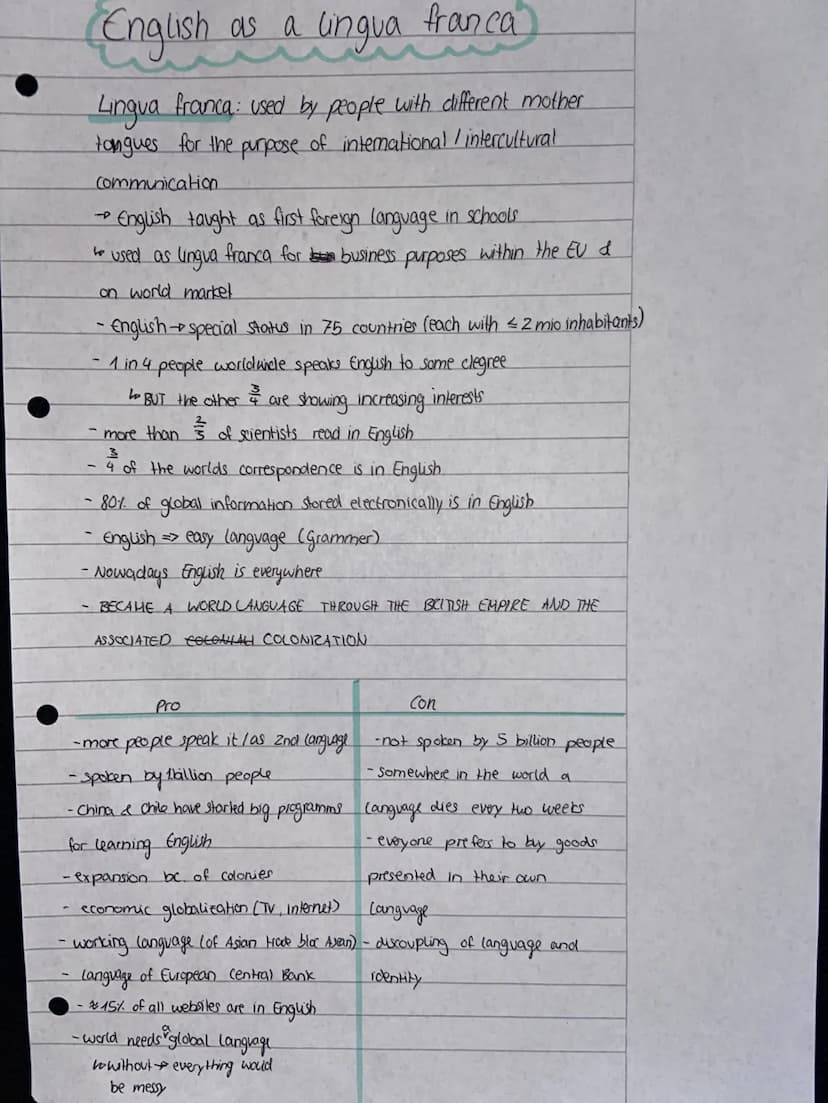 English as a lingua franca
Lingua franca: used by people with different mother
tongues for the purpose of international / intercultural
communication
→ English taught as first foreign language in schools
↳ used as lingua franca for business purposes within the EU &
on world market
- English → special status in 75 countries (each with ≤ 2 mio inhabitants)
- 1 in 4 people worldwide speaks English to some degree
↳ BUT the other 3/4 are showing increasing interests
- more than 2/3 of scientists read in English
- 3/4 of the worlds correspondence is in English
- 80% of global information stored electronically is in English
- English => easy language (Grammer)
- Nowadays English is everywhere
- BECAME A WORLD LANGUAGE THROUGH THE BRITISH EMPIRE AND THE
ASSOCIATED COLONIZATION
Pro
- more people speak it / as 2nd language
- spoken by 1 billion people
- China & Chile have started big programms
for learning English
- expansion bc. of colonies
- economic globalization (TV, internet)
- working language (of Asian trade bloc Asean)
- language of European Central Bank
- ≈45% of all websites are in English
- world needs a global language
↳ without → everything would
be messy
Con
- not spoken by 5 billion people
- somewhere in the world a
language dies every two weeks
- everyone prefers to by goods
presented in their own
language
- discoupling of language and
identity